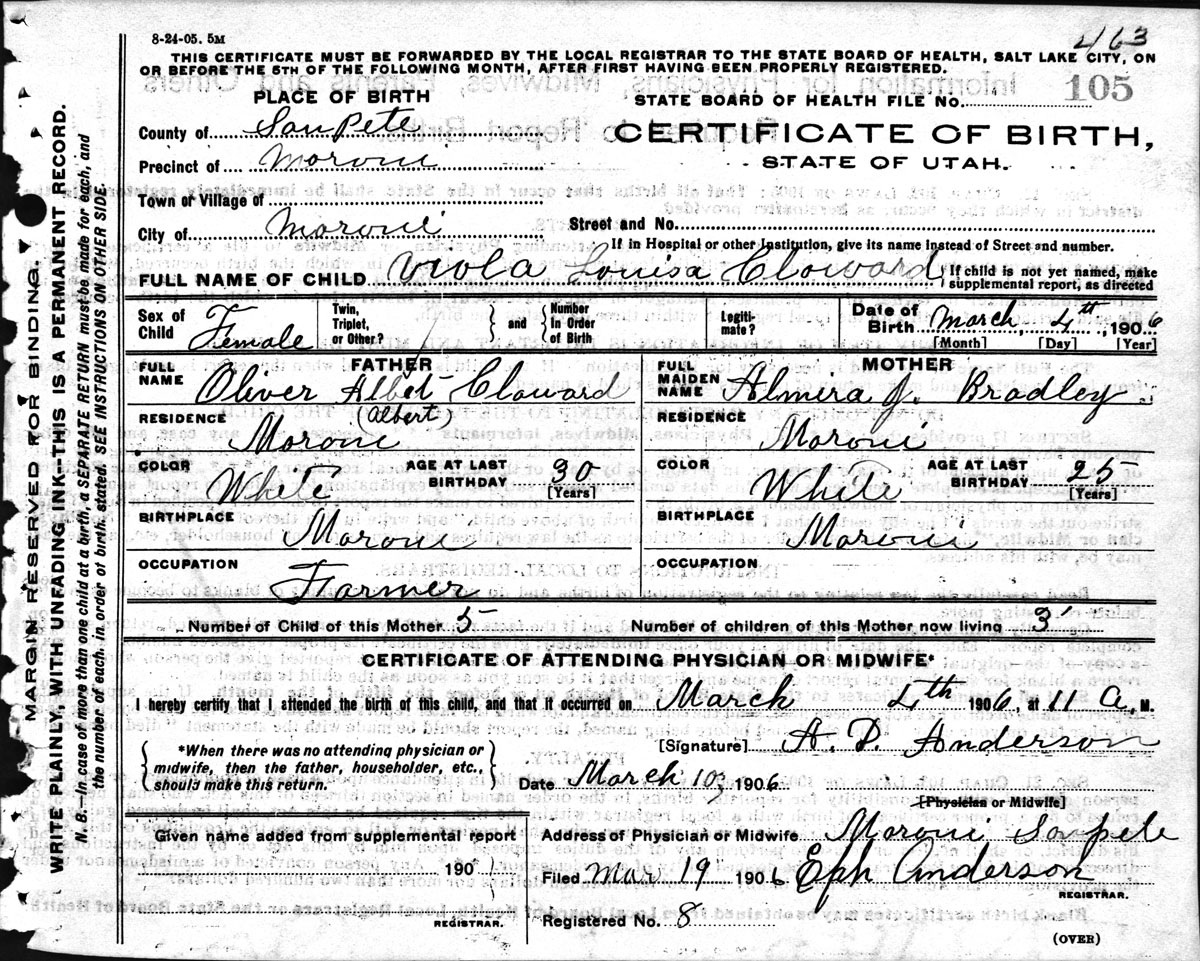 8-24-05. 5M
463
THIS CERTIFICATE MUST BE FORWARDED BY THE LOCAL REGISTRAR TO THE STATE BOARD OF HEALTH, SALT LAKE CITY, ON
OR BEFORE THE 5TH OF THE FOLLOWING MONTH, AFTER FIRST HAVING BEEN PROPERLY REGISTERED.
PLACE OF BIRTH
STATE BOARD OF HEALTH FILE No. 105
County of SanPete
CERTIFICATE OF BIRTH,
Precinct of Moroni
STATE OF UTAH.
Town or Village of
City of Moroni Street and No.
If in Hospital or other Institution, give its name instead of Street and number.
FULL NAME OF CHILD Viola Louisa Cloward { If child is not yet named, make supplemental report, as directed
Sex of Child Female Twin, Triplet, or Other? } and { Number In Order of Birth Legiti- mate? Date of Birth March 4th, 1906
[Month] [Day] [Year]
FATHER MOTHER
FULL NAME Oliver Albet Cloward FULL MAIDEN NAME Almera J. Bradley
(Albert)
RESIDENCE Moroni RESIDENCE Moroni
COLOR White AGE AT LAST BIRTHDAY 30 [Years] COLOR White AGE AT LAST BIRTHDAY 25 [Years]
BIRTHPLACE Moroni BIRTHPLACE Moroni
OCCUPATION Farmer OCCUPATION
Number of Child of this Mother 5 Number of children of this Mother now living 3
CERTIFICATE OF ATTENDING PHYSICIAN OR MIDWIFE*
I hereby certify that I attended the birth of this child, and that it occurred on March 4th 1906, at 11 a. M.
*When there was no attending physician or
midwife, then the father, householder, etc.,
should make this return.
[Signature] A. D. Anderson
Date March 10, 1906
[Physician or Midwife]
Given name added from supplemental report
190
REGISTRAR.
Address of Physician or Midwife Moroni Sanpete
Filed Mar 19 1906 Eph Anderson
REGISTRAR.
Registered No. 8
(OVER)
MARGIN RESERVED FOR BINDING.
WRITE PLAINLY, WITH UNFADING INK-THIS IS A PERMANENT RECORD.
N. B.—In case of more than one child at a birth, a SEPARATE RETURN must be made for each, and
the number of each, in order of birth, stated. SEE INSTRUCTIONS ON OTHER SIDE.